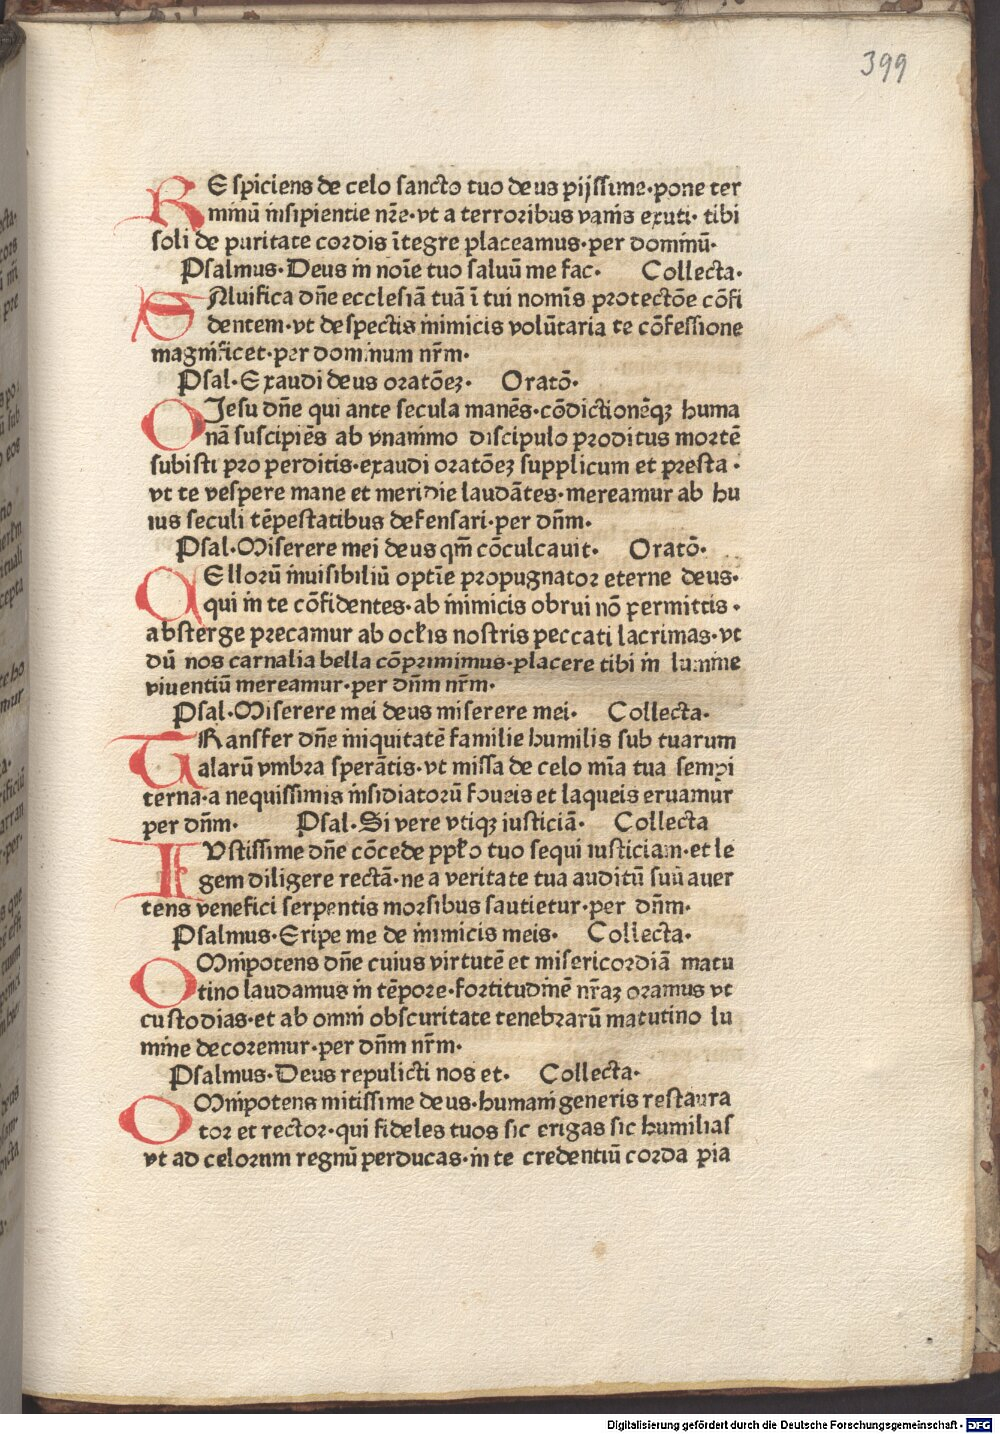 399
REspiciens de celo sancto tuo deus pijssime·pone ter
minū insipientie nr̄e·vt a terroribus vanis exuti· tibi
soli de puritate cordis ītegre placeamus·per dominū·
Psalmus·Deus in noīe tuo saluū me fac· Collecta·
SAluifica dn̄e ecclesiā tuā ī tui nominis protectōe cōfi
dentem·vt despectis inimicis volūtaria te cōfessione
magnificet·per dominum nr̄m·
Psal·Exaudi deus oratōeꝫ· Oratō·
OJesu dn̄e qui ante secula manēs·cōdictionēqꝫ huma
nā suscipiēs ab vnanimo discipulo proditus mortē
subisti pro perditis·exaudi oratōeꝫ supplicum et presta·
vt te vespere mane et meridie laudātes·mereamur ab hu
ius seculi tēpestatibus defensari·per dn̄m·
Psal·Miserere mei deus qm̄ cōculcauit· Oratō·
BEllorū inuisibiliū optīe propugnator eterne deus·
qui in te cōfidentes·ab inimicis obrui nō permittis·
absterge precamur ab ocłis nostris peccati lacrimas·vt
dū nos carnalia bella cōprimimus·placere tibi in lumine
viuentiū mereamur·per dn̄m nr̄m·
Psal·Miserere mei deus miserere mei· Collecta·
TRansfer dn̄e iniquitatē familie humilis sub tuarum
alarū vmbra sperātis·vt missa de celo mīa tua sempi
terna·a nequissimis insidiatorū foueis et laqueis eruamur
per dn̄m· Psal·Si vere vtiqꝫ iusticiā· Collecta
IVstissime dn̄e cōcede ppło tuo sequi iusticiam·et le
gem diligere rectā·ne a veritate tua auditū suū auer
tens venefici serpentis morsibus sautietur·per dn̄m·
Psalmus·Eripe me de inimicis meis· Collecta·
OMnipotens dn̄e cuius virtutē et misericordiā matu
tino laudamus in tēpore·fortitudinē nr̄aꝫ oramus vt
custodias·et ab omni obscuritate tenebrarū matutino lu
mine decoremur·per dn̄m nr̄m·
Psalmus·Deus repulicti nos et· Collecta·
OMnipotens mitissime deus·humani generis restaura
tor et rector·qui fideles tuos sic erigas sic humilias
vt ad celorum regnū perducas·in te credentiū corda pia
Digitalisierung gefördert durch die Deutsche Forschungsgemeinschaft - DFG